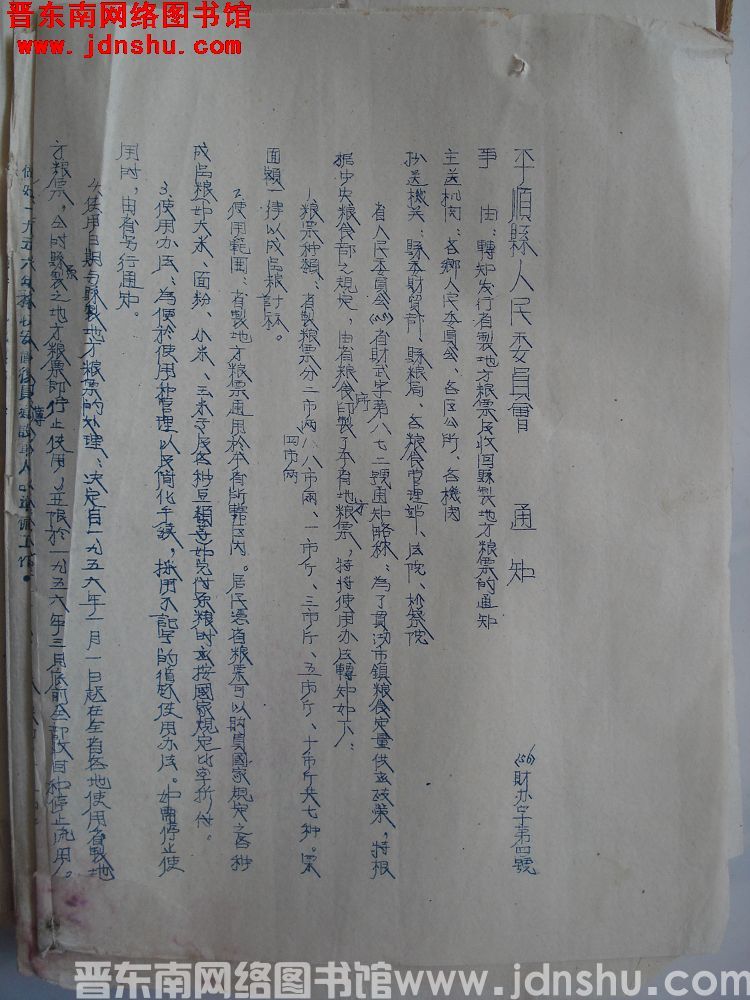 晋东南网络图书馆
www.jdnshu.com
平順縣人民委員會 通知
(56)財办字第四號
事由：轉知发行省製地方粮票及收回縣製地方粮票的通知
主送机関：各鄉人民委員会、各区公所、各機関
抄送機关：縣委財貿部、縣粮局、各粮食管理部、法院、检察院
省人民委員会(56)省財武字第八七二號通知略称：為了貫彻市鎮粮食定量供应政策，特根
据中央粮食部之規定，由省粮食所印製了本省地方粮票，特將使用办法轉知如下：
1、粮票种類：省製粮票分二市两、四市两、八市两、一市斤、三市斤、五市斤、十市斤共七种。票
面額一律以成品粮計标。
2、使用範囲：省製地方粮票通用於本省所轄区內。居民憑省粮票可以購買國家規定之各种
成品粮（如大米、面粉、小米、玉米子及各种豆類等）如兌付原粮时应按國家規定比率折付。
3、使用办法：為便於使用和管理以及简化手续，採用不記号的循环使用办法。如需停止使
用时，由省另行通知。
4、使用日期与縣製地方粮票的处理：决定自一九五六年一月一日起在全省各地使用省製地
方粮票，今时原縣製之地方粮票即停止使用，並限於一九五六年三月底前全部收回和停止流用。
晋东南网络图书馆www.jdnshu.com